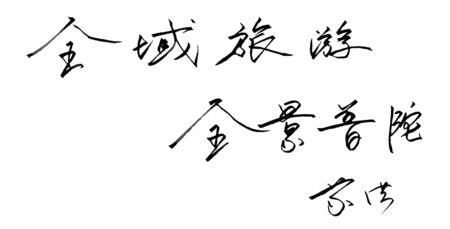 全域旅游
全景普陀
家洪